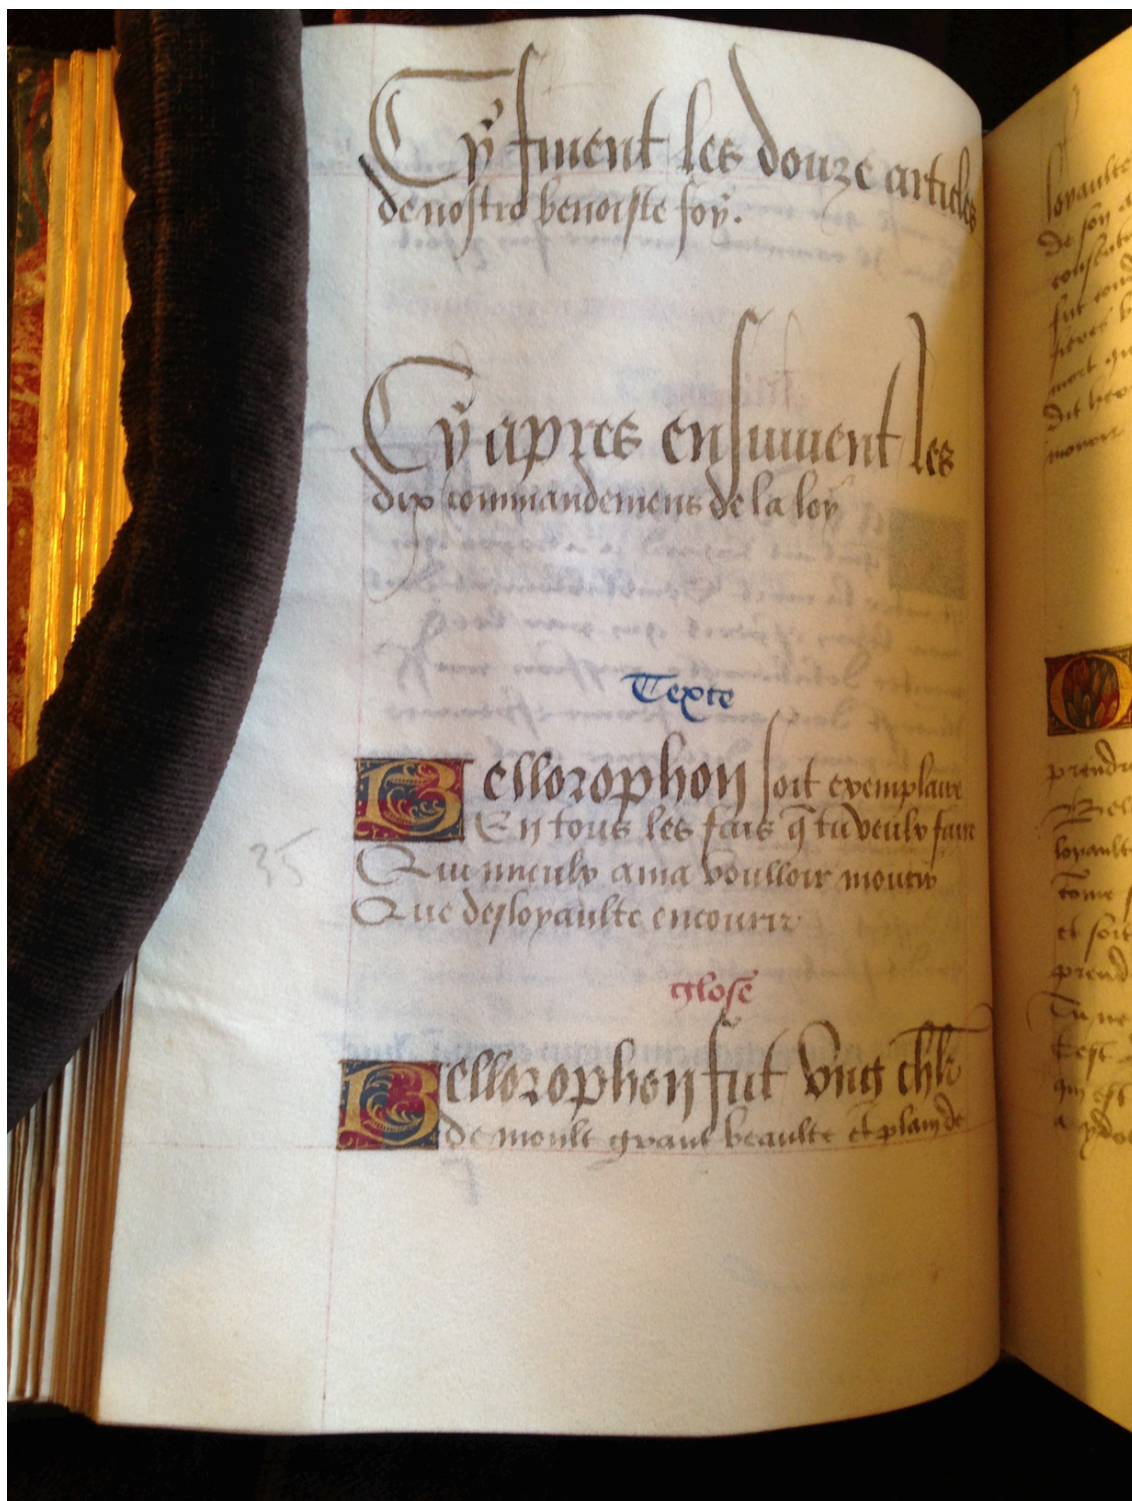 Cy finent les douze articles
de nostre benoiste foy.
Cy apres ensuiuent les
dix commandemens de la loy
Texte
Bellorophon soit exemplaire
En tous les fais q̃ tu veulx faire
Qui mieulx ama voulloir mourir
Que desloyaulte encourir
35
glose
Bellorophon fut vng chl̃r
de moult grant beaulte et plain de
loyaulte
de son
prendre
loyaulte
et soit
prend
qui est